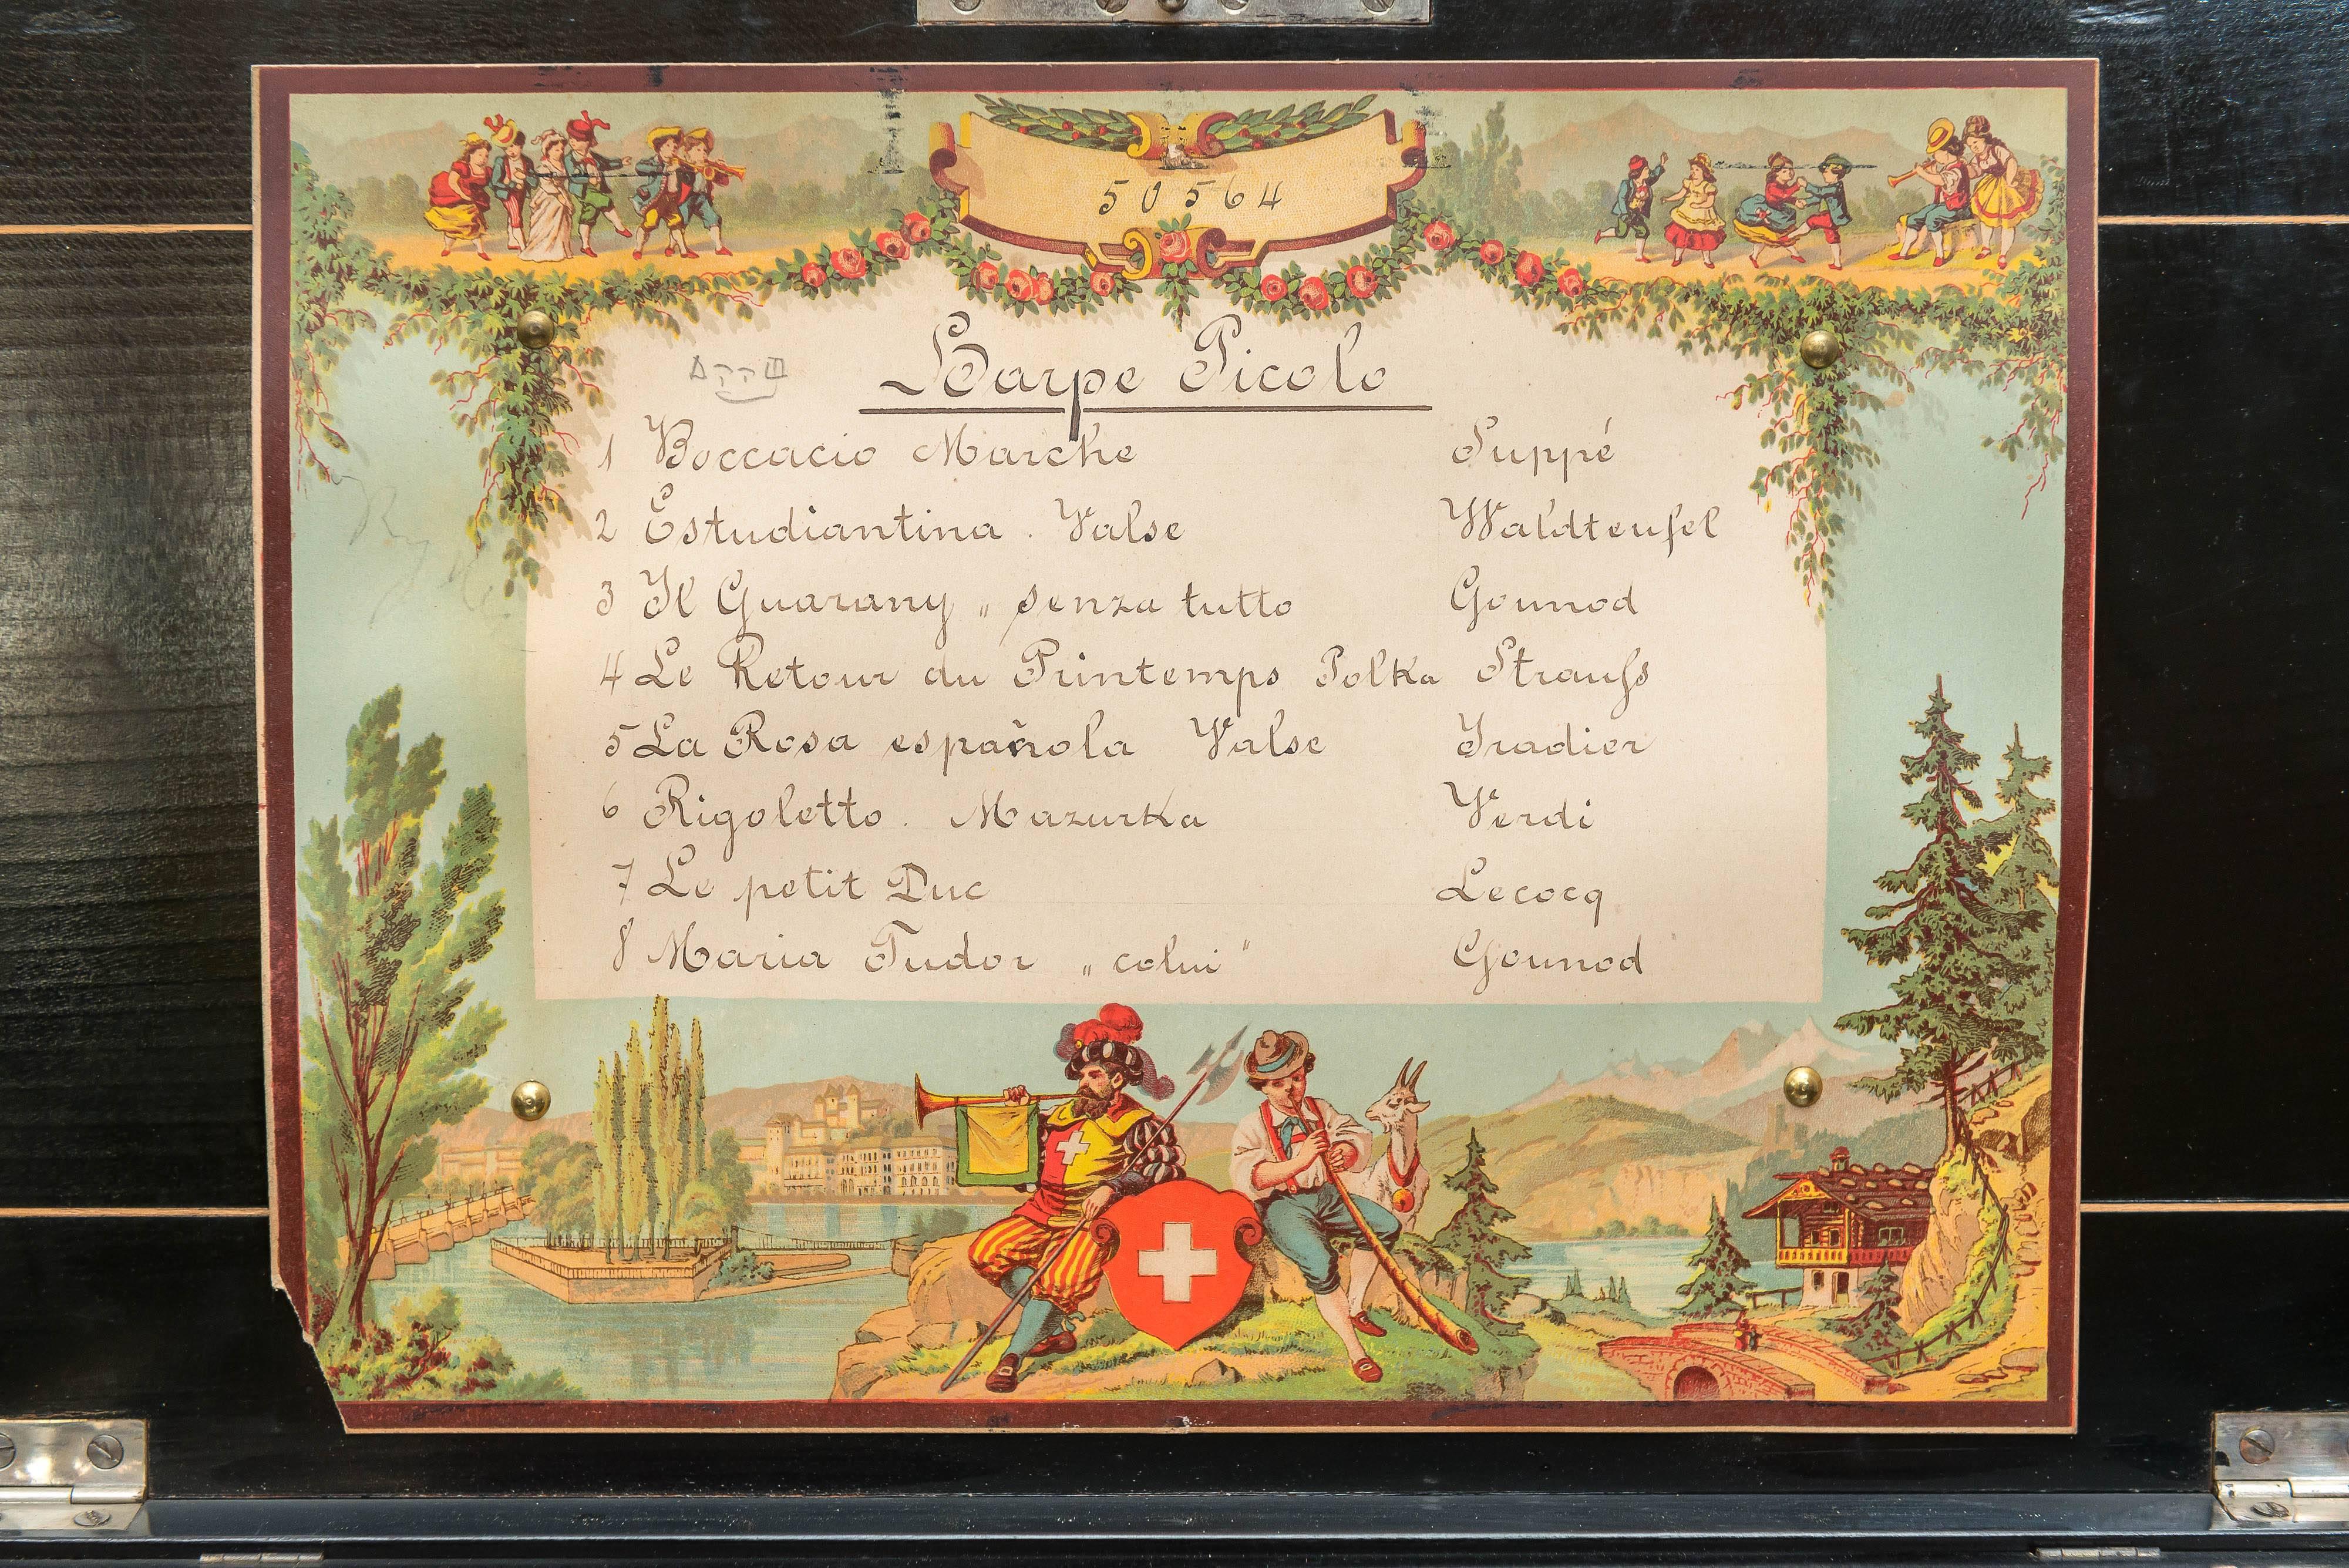 50564
Harpe Picolo
1 Boccacio Marche Suppé
2 Estudiantina . Valse Waldteufel
3 Il Guarany „ senza tutto Gounod
4 Le Retour du Printemps Polka Strauſs
5 La Rosa española Valse Yradier
6 Rigoletto . Mazurka Verdi
7 Le petit Duc Lecocq
8 Maria Tudor „ colui " Gounod